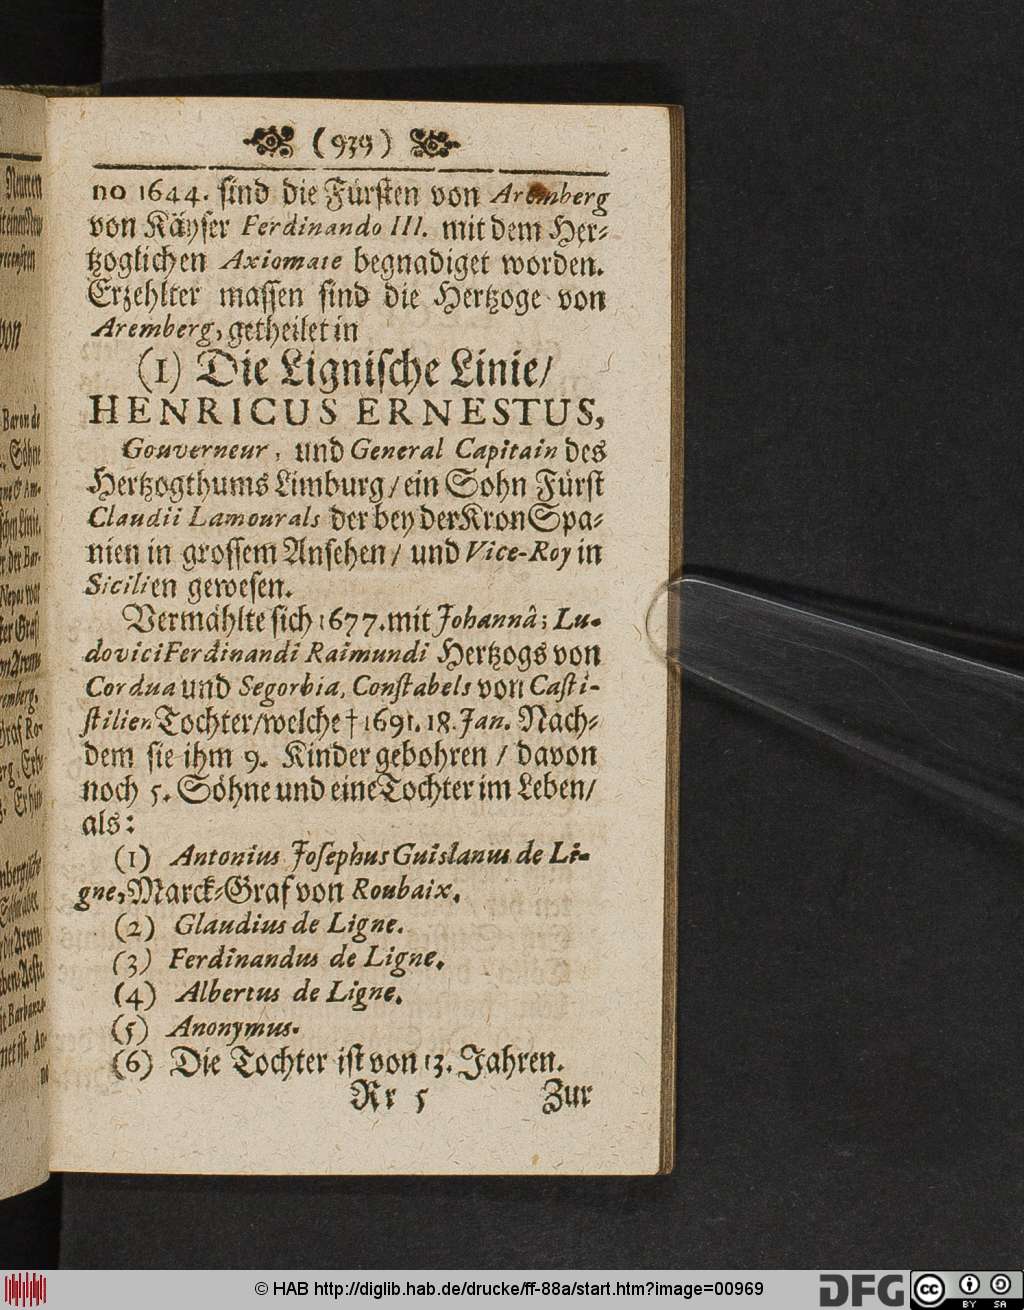 (939)
no 1644. sind die Fürsten von Aremberg
von Käyser Ferdinando III. mit dem Her-
tzoglichen Axiomate begnadiget worden.
Erzehlter massen sind die Hertzoge von
Aremberg, getheilet in
(1) Die Lignische Linie/
HENRICUS ERNESTUS,
Gouverneur, und General Capitain des
Hertzogthums Limburg/ ein Sohn Fürst
Claudii Lamourals der bey der Kron Spa-
nien in grossem Ansehen/ und Vice-Roy in
Sicilien gewesen.
Vermählte sich 1677. mit Johannâ; Lu-
dovici Ferdinandi Raimundi Hertzogs von
Cordua und Segorbia, Constabels von Casti-
stilien Tochter/ welche † 1691. 18. Jan. Nach-
dem sie ihm 9. Kinder gebohren / davon
noch 5. Söhne und eine Tochter im Leben/
als:
(1) Antonius Josephus Guislanus de Li-
gne, Marck-Graf von Roubaix.
(2) Glaudius de Ligne.
(3) Ferdinandus de Ligne.
(4) Albertus de Ligne.
(5) Anonymus.
(6) Die Tochter ist von 13. Jahren.
Rr 5 Zur
© HAB http://diglib.hab.de/drucke/ff-88a/start.htm?image=00969
DFG cc BY SA